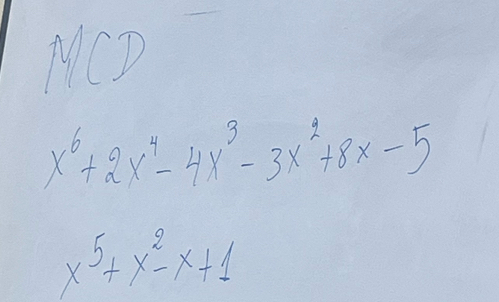 MCD
x⁶+2x⁴-4x³-3x²+8x-5
x⁵+x²-x+1